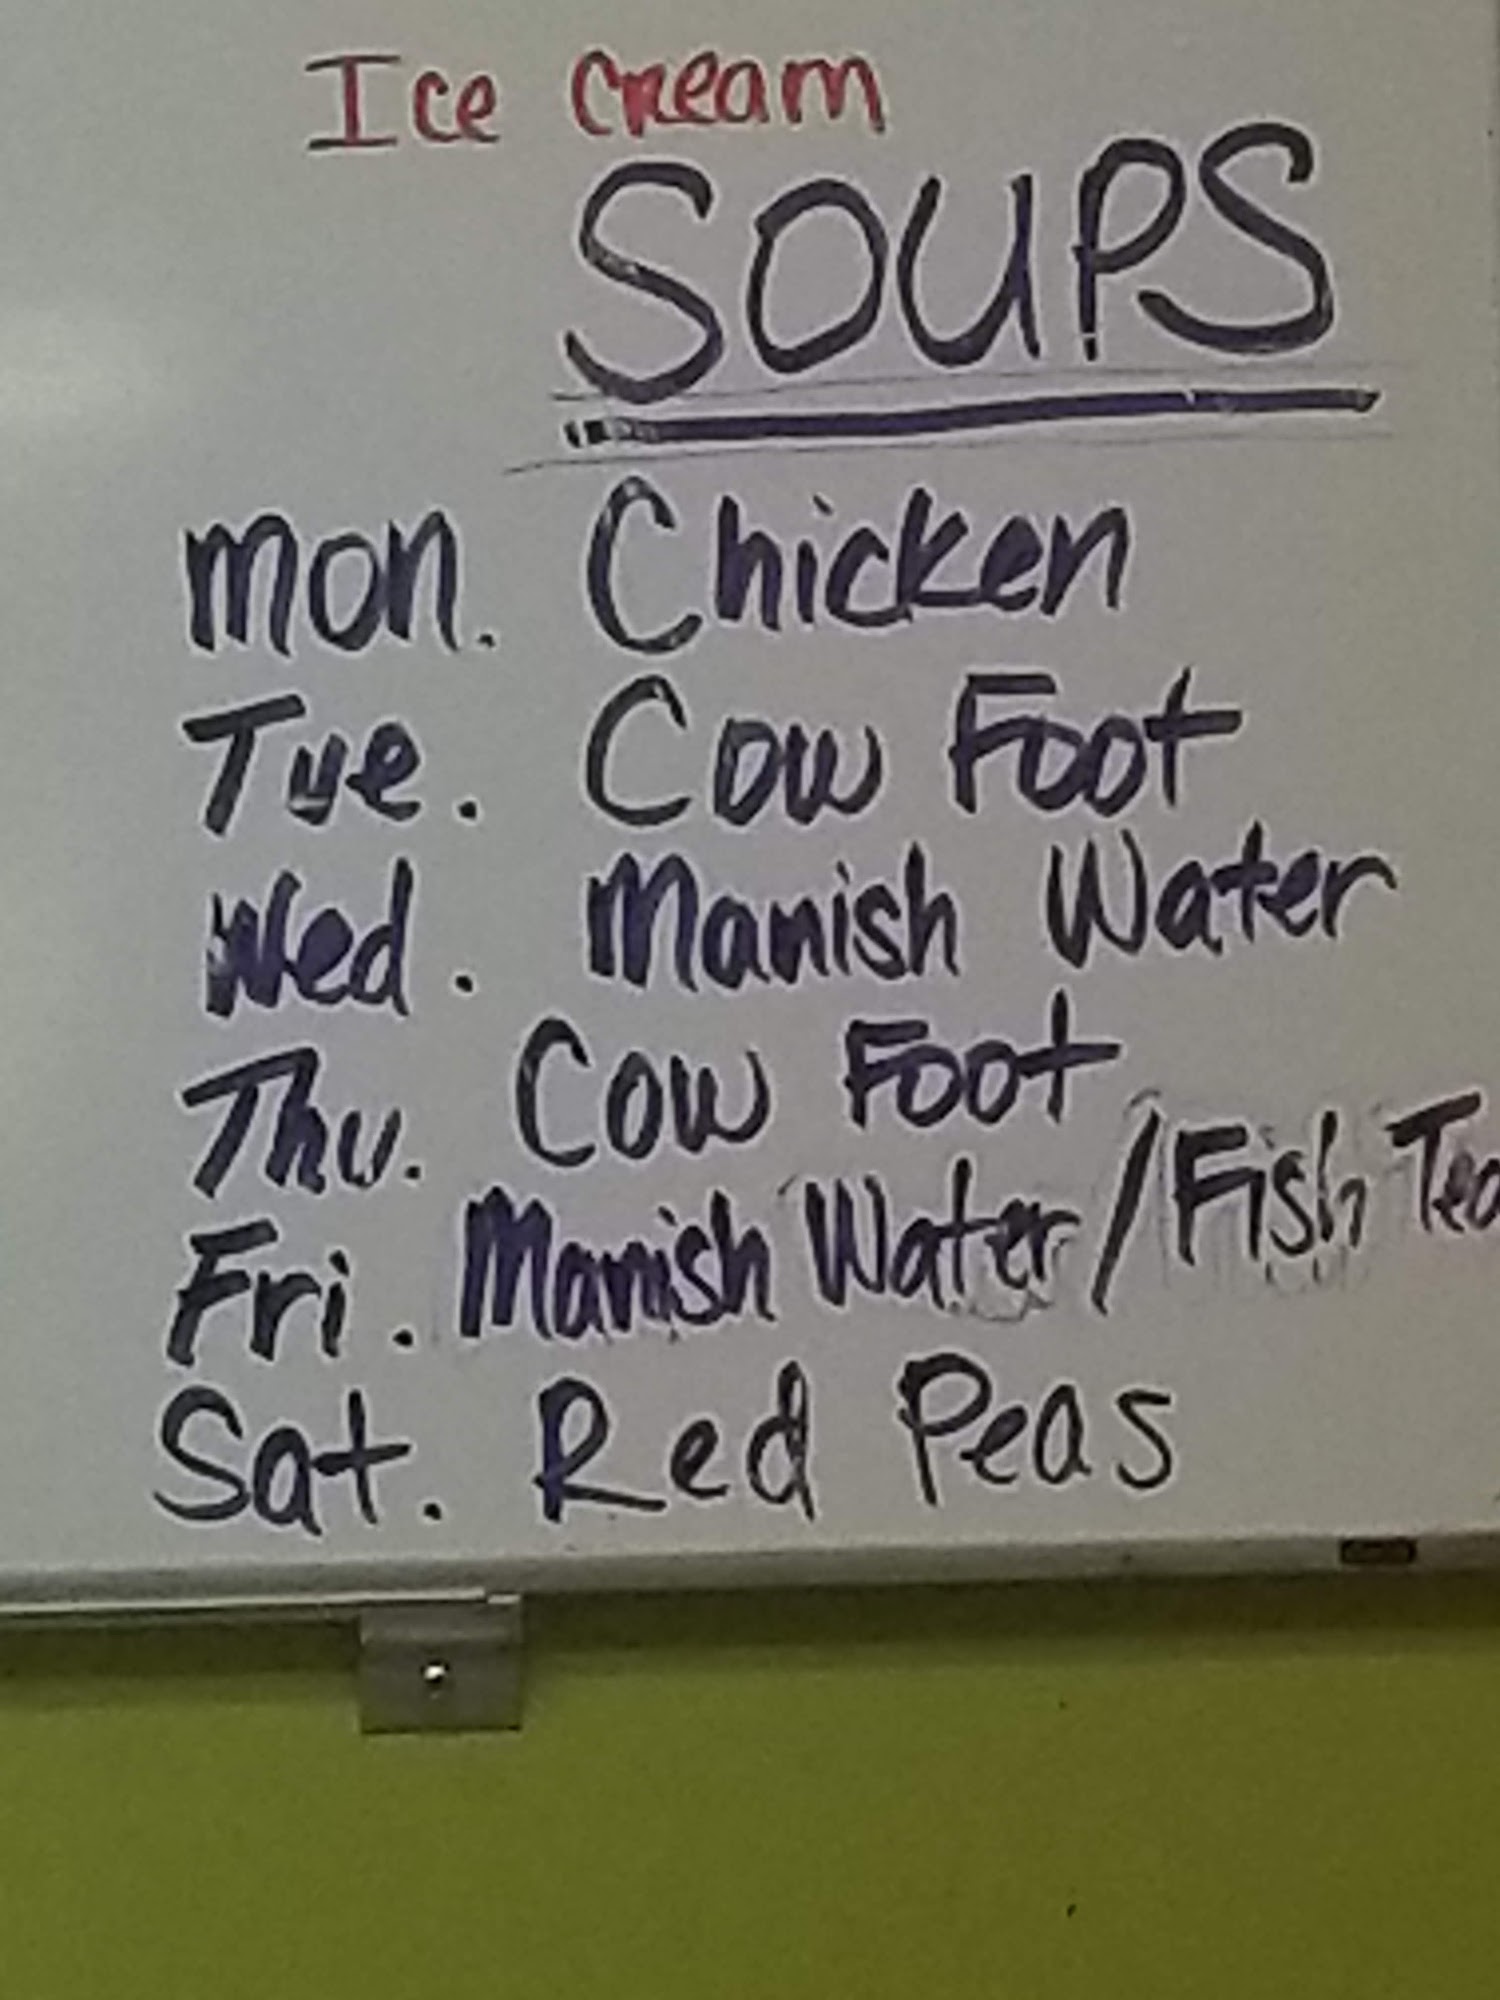 Ice Cream
SOUPS
Mon. Chicken
Tue. Cow Foot
Wed. Manish Water
Thu. Cow Foot
Fri. Manish Water / Fish Tea
Sat. Red Peas